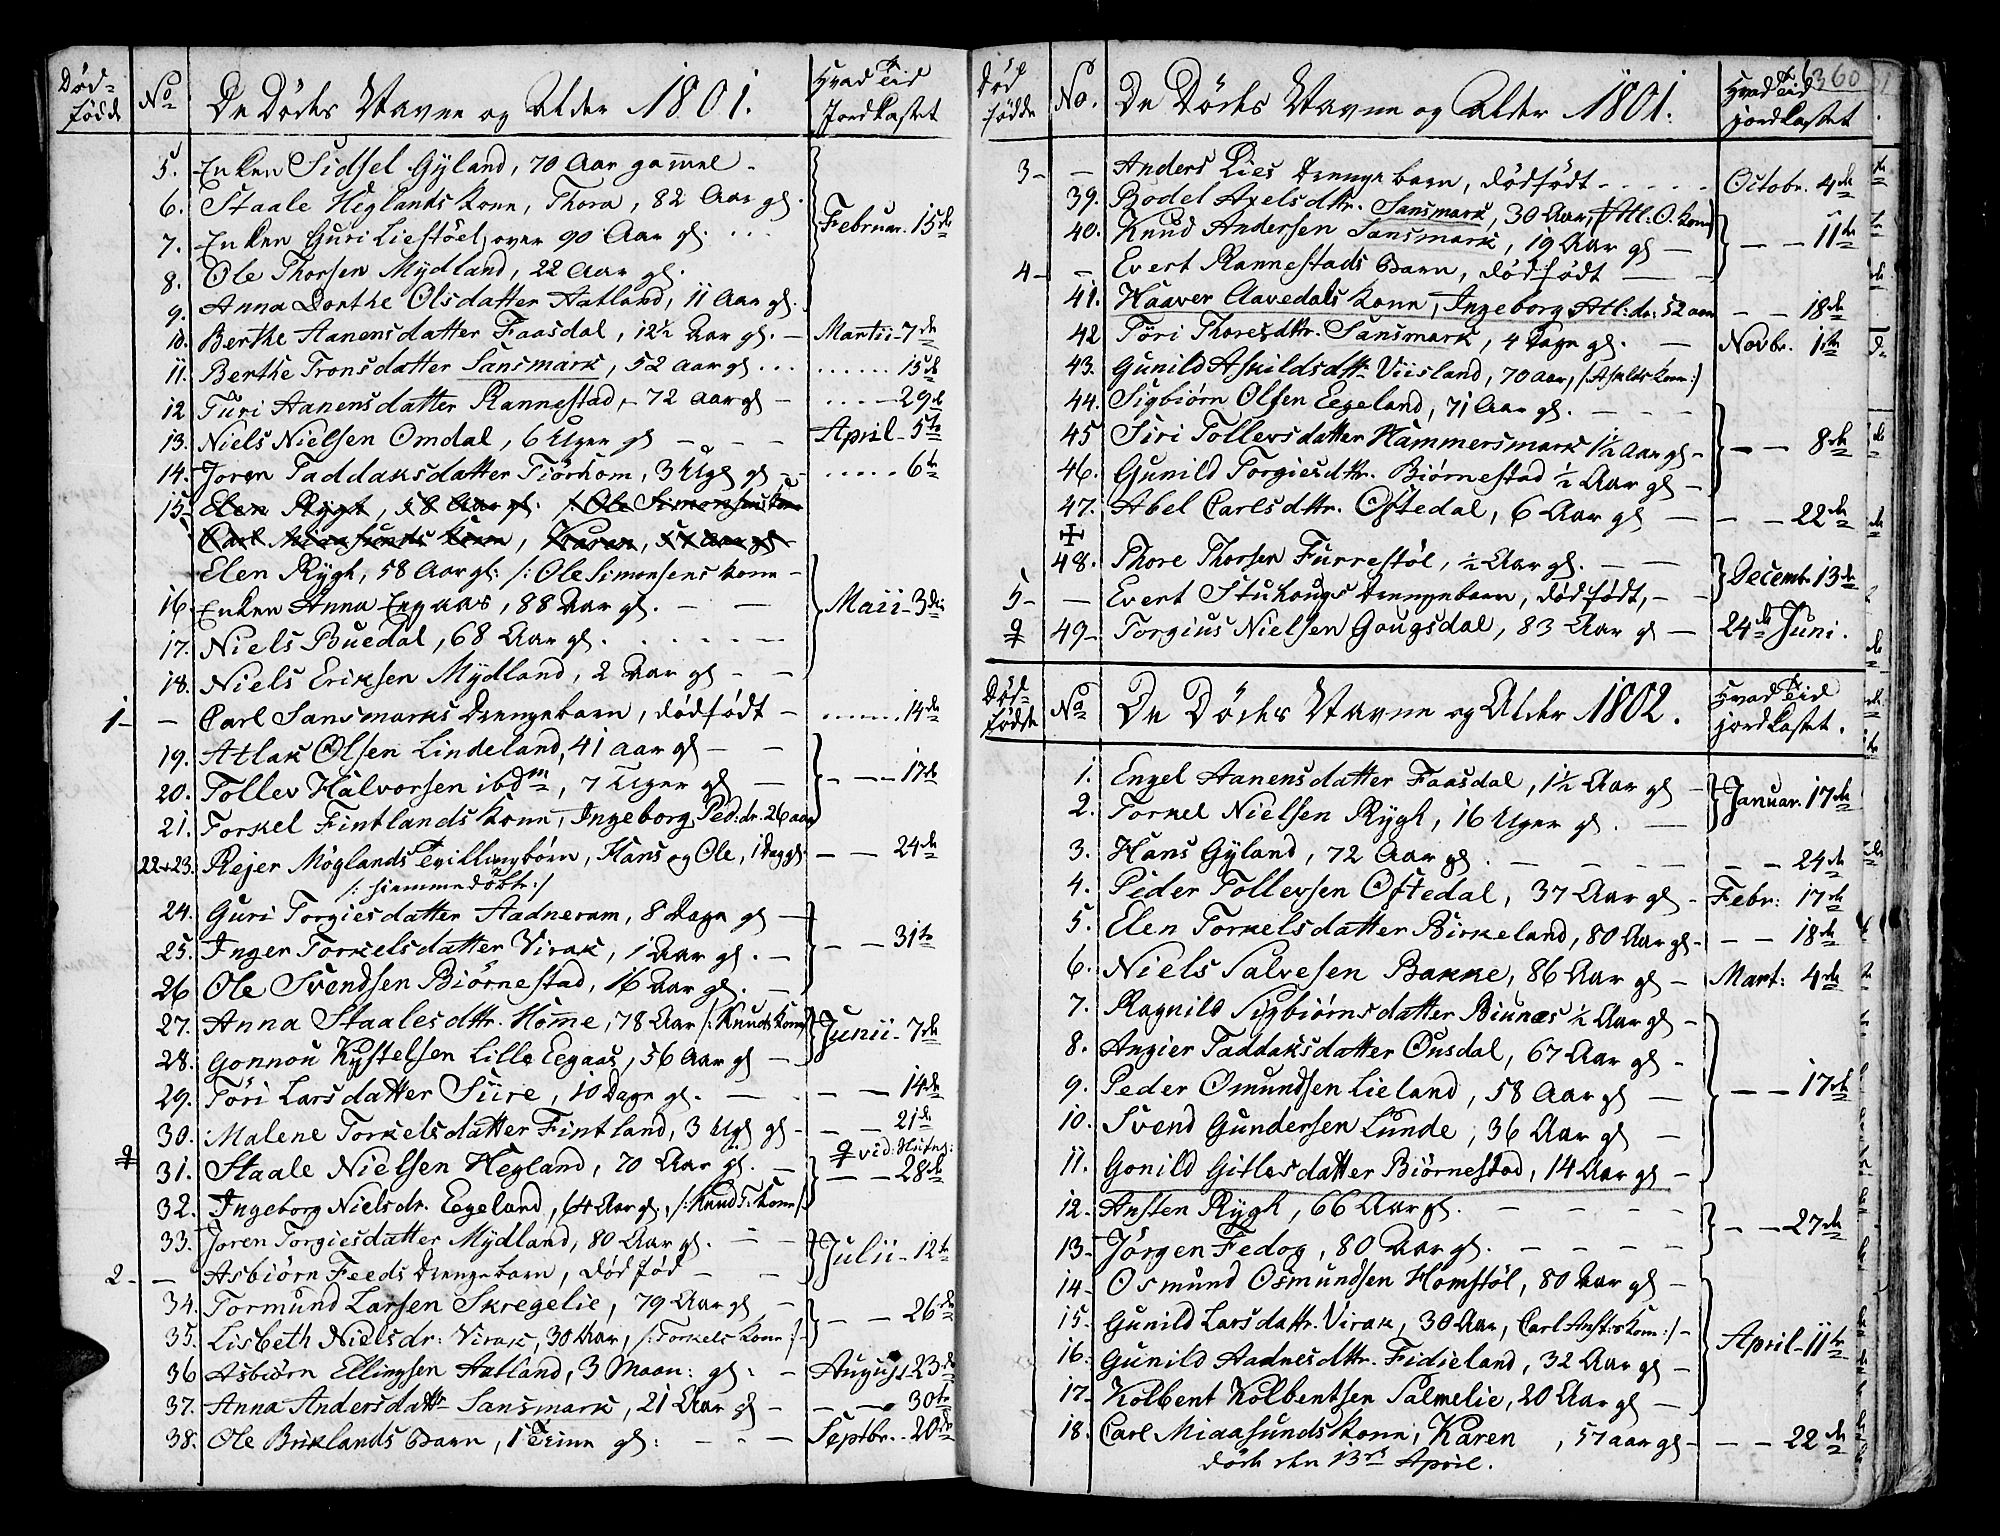 Død-
fødde
No
De Dødes Navne og Alder 1801.
Hvad Tid
Jordkastet
5. Enken Sidsel Gyland, 70 Aar gammel -
6. Staale Heglands Kone, Thora, 82 Aar gl.
7. Enken Guri Liestöel, over 90 Aar gl. . . .
Februar. 15de
8. Ole Thorsen Mydland, 22 Aar gl.
9. Anna Dorthe Olsdatter Aatland, 11 Aar gl.
10. Berthe Aanensdatter Faasdal, 12½ Aar gl. - Martii - 7de
11. Berthe Tronsdatter Sansmark, 52 Aar gl . . . . . . . . . 15de
12 Turi Aanensdatter Rannestad, - 72 Aar gl - . . . . 29de
13. Niels Nielsen Omdal, 6 Uger gl - - - April - 5te
14. Joren Taddaksdatter Tiörhom, 3 Ugr gl - - . . . . . 6te
15. Elen Rygh, 58 Aar gl. /: Ole Simonsens Kone
Carl Miaasunds Kone, Karen, 57 Aar gl -
Elen Rygh, 58 Aar gl: /: Ole Simonsens Kone -
16 Enken Anna Eegaas, 88 Aar gl. - -
Maii - 3die
17. Niels Buedal, 68 Aar gl. . . . . .
18. Niels Eriksen Mydland, 2 Aar gl - -
1- - Carl Sansmarks Drengebarn, dödfödt - . . . . . 14de
19. Atlak Olsen Lindeland, 41 aar gl - -
20. Tollev Halvorsen ibdm, 7 Uger gl - - - - 17de
21. Torkel Fintlands Kone, Ingeborg Ped:dr. 26 aar
22 & 23. Rejer Möglands Tvillingbörn, Hans og Ole, 1 Dag gl. - - 24de
/: hiemmedöbte :/
24. Guri Torgiesdatter Aadneram, 8 Dage gl -
25. Inger Torkelsdatter Virak, 1 Aar gl. - - - 31te
26 Ole Svendsen Biörnestad, 16 Aar gl. -
27. Anna Staalesdttr. Homme, 78 Aar /: Knuds Kone
Junii - 7de
28. Gonnou Kystelsen Lille Eegaas, 56 Aar gl -
29. Töri Larsdatter Siire, 10 Dage gl. - - - 14de
30. Malene Torkelsdatter Fintland, 3 Ugr gl - - - 21de
31. Staale Nielsen Hegland, 70 Aar gl. - - - 28de
32. Ingeborg Nielsdr. Eegeland, 64 Aar gl., /: Knud T. Kone :/
33. Joren Torgiesdatter Mydland, 80 Aar gl. - -
Julii - 12te
2- - Asbiörn Feeds Drengebarn, död föd - -
34. Tormund Larsen Skregelie, 79 Aar gl -
- - 26de
35. Lisbeth Nielsdr: Virak, 30 Aar, /: Torkels Kone :/ -
36 Asbiörn Ellingsen Aatland, 3 Maan: gl: - August - 23de
37. Anna Andersdattr Sansmark, 21 Aar gl - - - 30te
38. Ole Briklands Barn, 1 Time gl: - - - Septbr. - 20de
Död
fødde
No.
De Dödes Navne og Alder 1801.
Hvad Tid
jordkastet
360
3- - Anders Lies Drengebarn, dödfödt - . . . . - Octobr. 4de
39. Bodel Axelsdttr. Sansmark, 30 Aar, /: Atl. O. Kone
40. Knud Andersen Sansmark, 19 Aar gl - - - 11te
4- - Evert Rannestads Barn, dödfödt - -
41. Haaver Aavedals Kone, Ingeborg Atl:dr: 52 aar - - 18de
42 Töri Thoresdttr. Sansmark, 4 Dage gl. - Novbr. 1ste
43. Gunild Askildsdattr Viisland, 70 aar, /: Askilds Kone :/
44. Sigbiörn Olsen Eegeland, 71 Aar gl. - - -
45 Siri Tollevsdatter Hammersmark 1½ Aar gl - - - 8de
46. Gunild Torgiesdttr. Biörnestad ½ Aar gl -
47. Abel Carlsdttr. Oftedal, 6 Aar gl - - - 22de
48. Thore Thorsen Furrestöl, ½ Aar gl. - -
Decemb. 13de
5- - Evert Stuhougs Drengebarn, dödfödt, - -
49 - Torgius Nielsen Gougsdal, 83 Aar gl - 24de Juni.
Död-
fødde
No
De Dödes Navne og Alder 1802.
Hvad Tid
jordkastet.
1. Engel Aanensdatter Faasdal, 1½ Aar gl -
Januar. 17de
2. Torkel Nielsen Rygh, 16 Uger gl. -
3. Hans Gyland, 72 Aar gl. - - - - - - 24de
4. Peder Tollevsen Oftedal, 37 Aar gl - Febr: 17de
5. Elen Torkelsdatter Birkeland, 80 Aar gl - - - 18de
6. Niels Salvesen Bakke, 86 Aar gl - Mart: 4de
7. Ragnild Sigbiörnsdatter Biunæs ½ Aar gl -
8. Angier Taddaksdatter Ousdal, 67 Aar gl -
9. Peder Omundsen Lieland, 58 Aar gl - - - 17de
10. Svend Gundersen Lunde, 36 Aar gl -
11. Gonild Gitlesdatter Biörnestad, 14 Aar gl -
12. Ansten Rygh, 66 Aar gl. - - - -
- - 27de
13 - Jörgen Fedog, 80 Aar gl. - - - -
14 - Osmund Osmundsen Homstöl, 80 Aar gl -
15. Gunild Larsdattr. Virak, 30 Aar, Carl Anst:s Kone :/ -
April - 11te
16. Gunild Aadnesdttr. Fidieland, 32 Aar gl -
17. Kolbent Kolbentsen Salmelie, 20 Aar gl -
18. Carl Miaasunds Kone, Karen, 57 aar gl - - - 22de
döde den 13de April.